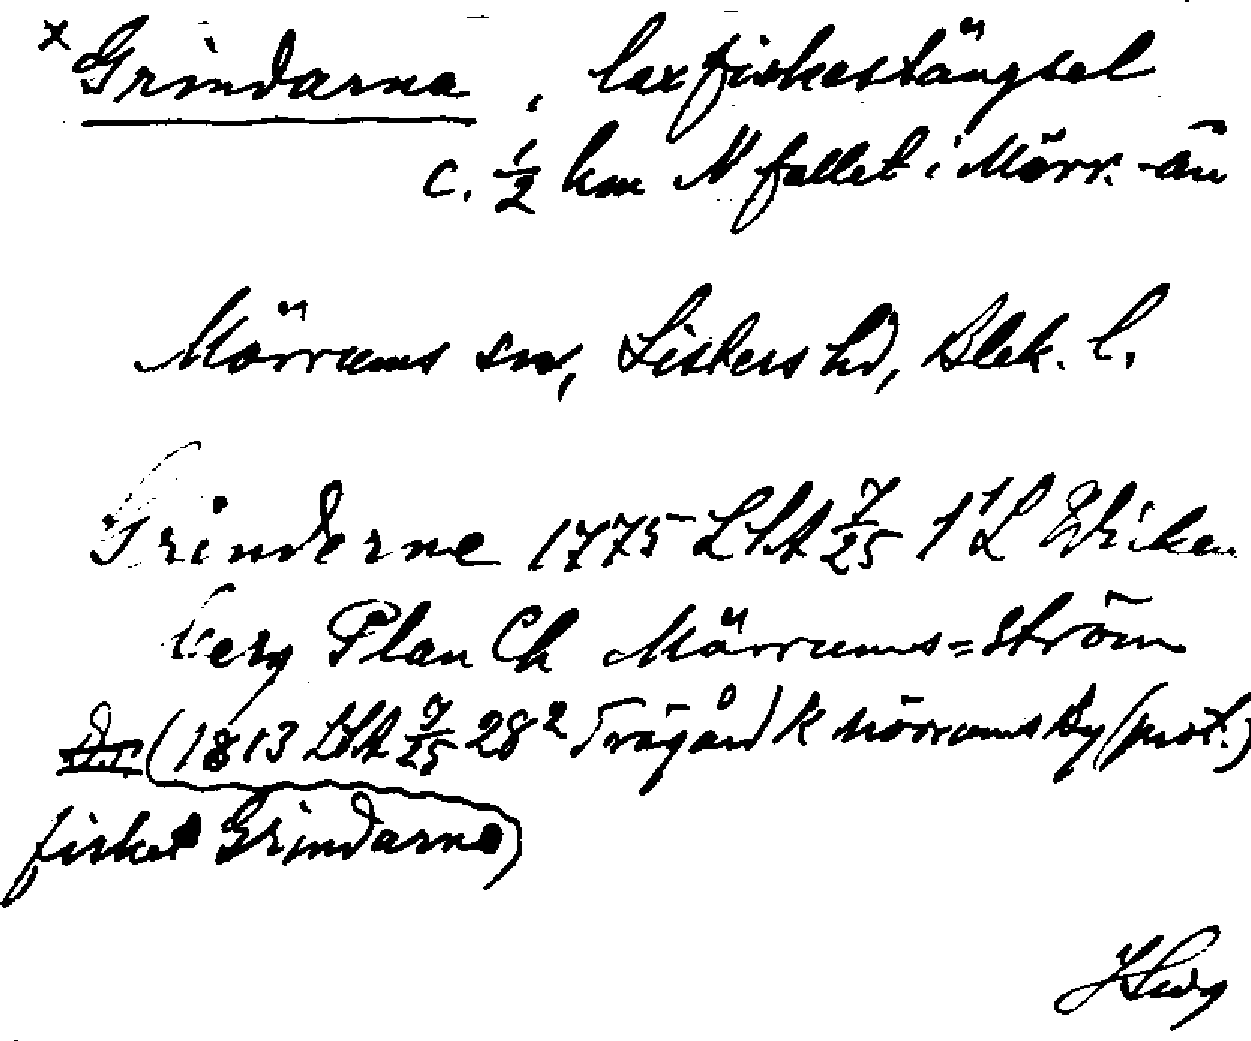 x Grindarna, laxfiskestängsel
c. 1/2 km N fallet i Mörr.-ån
Mörrums sn, Listers hd, Blek. l.
Grinderne 1775 LSA 7/25 1:1 L Wicken
berg Plan Ch Mörrums=ström
(1813 LSA 7/25 28² Trägård) k Mörrums by (prot.)
fisket Grindarne)